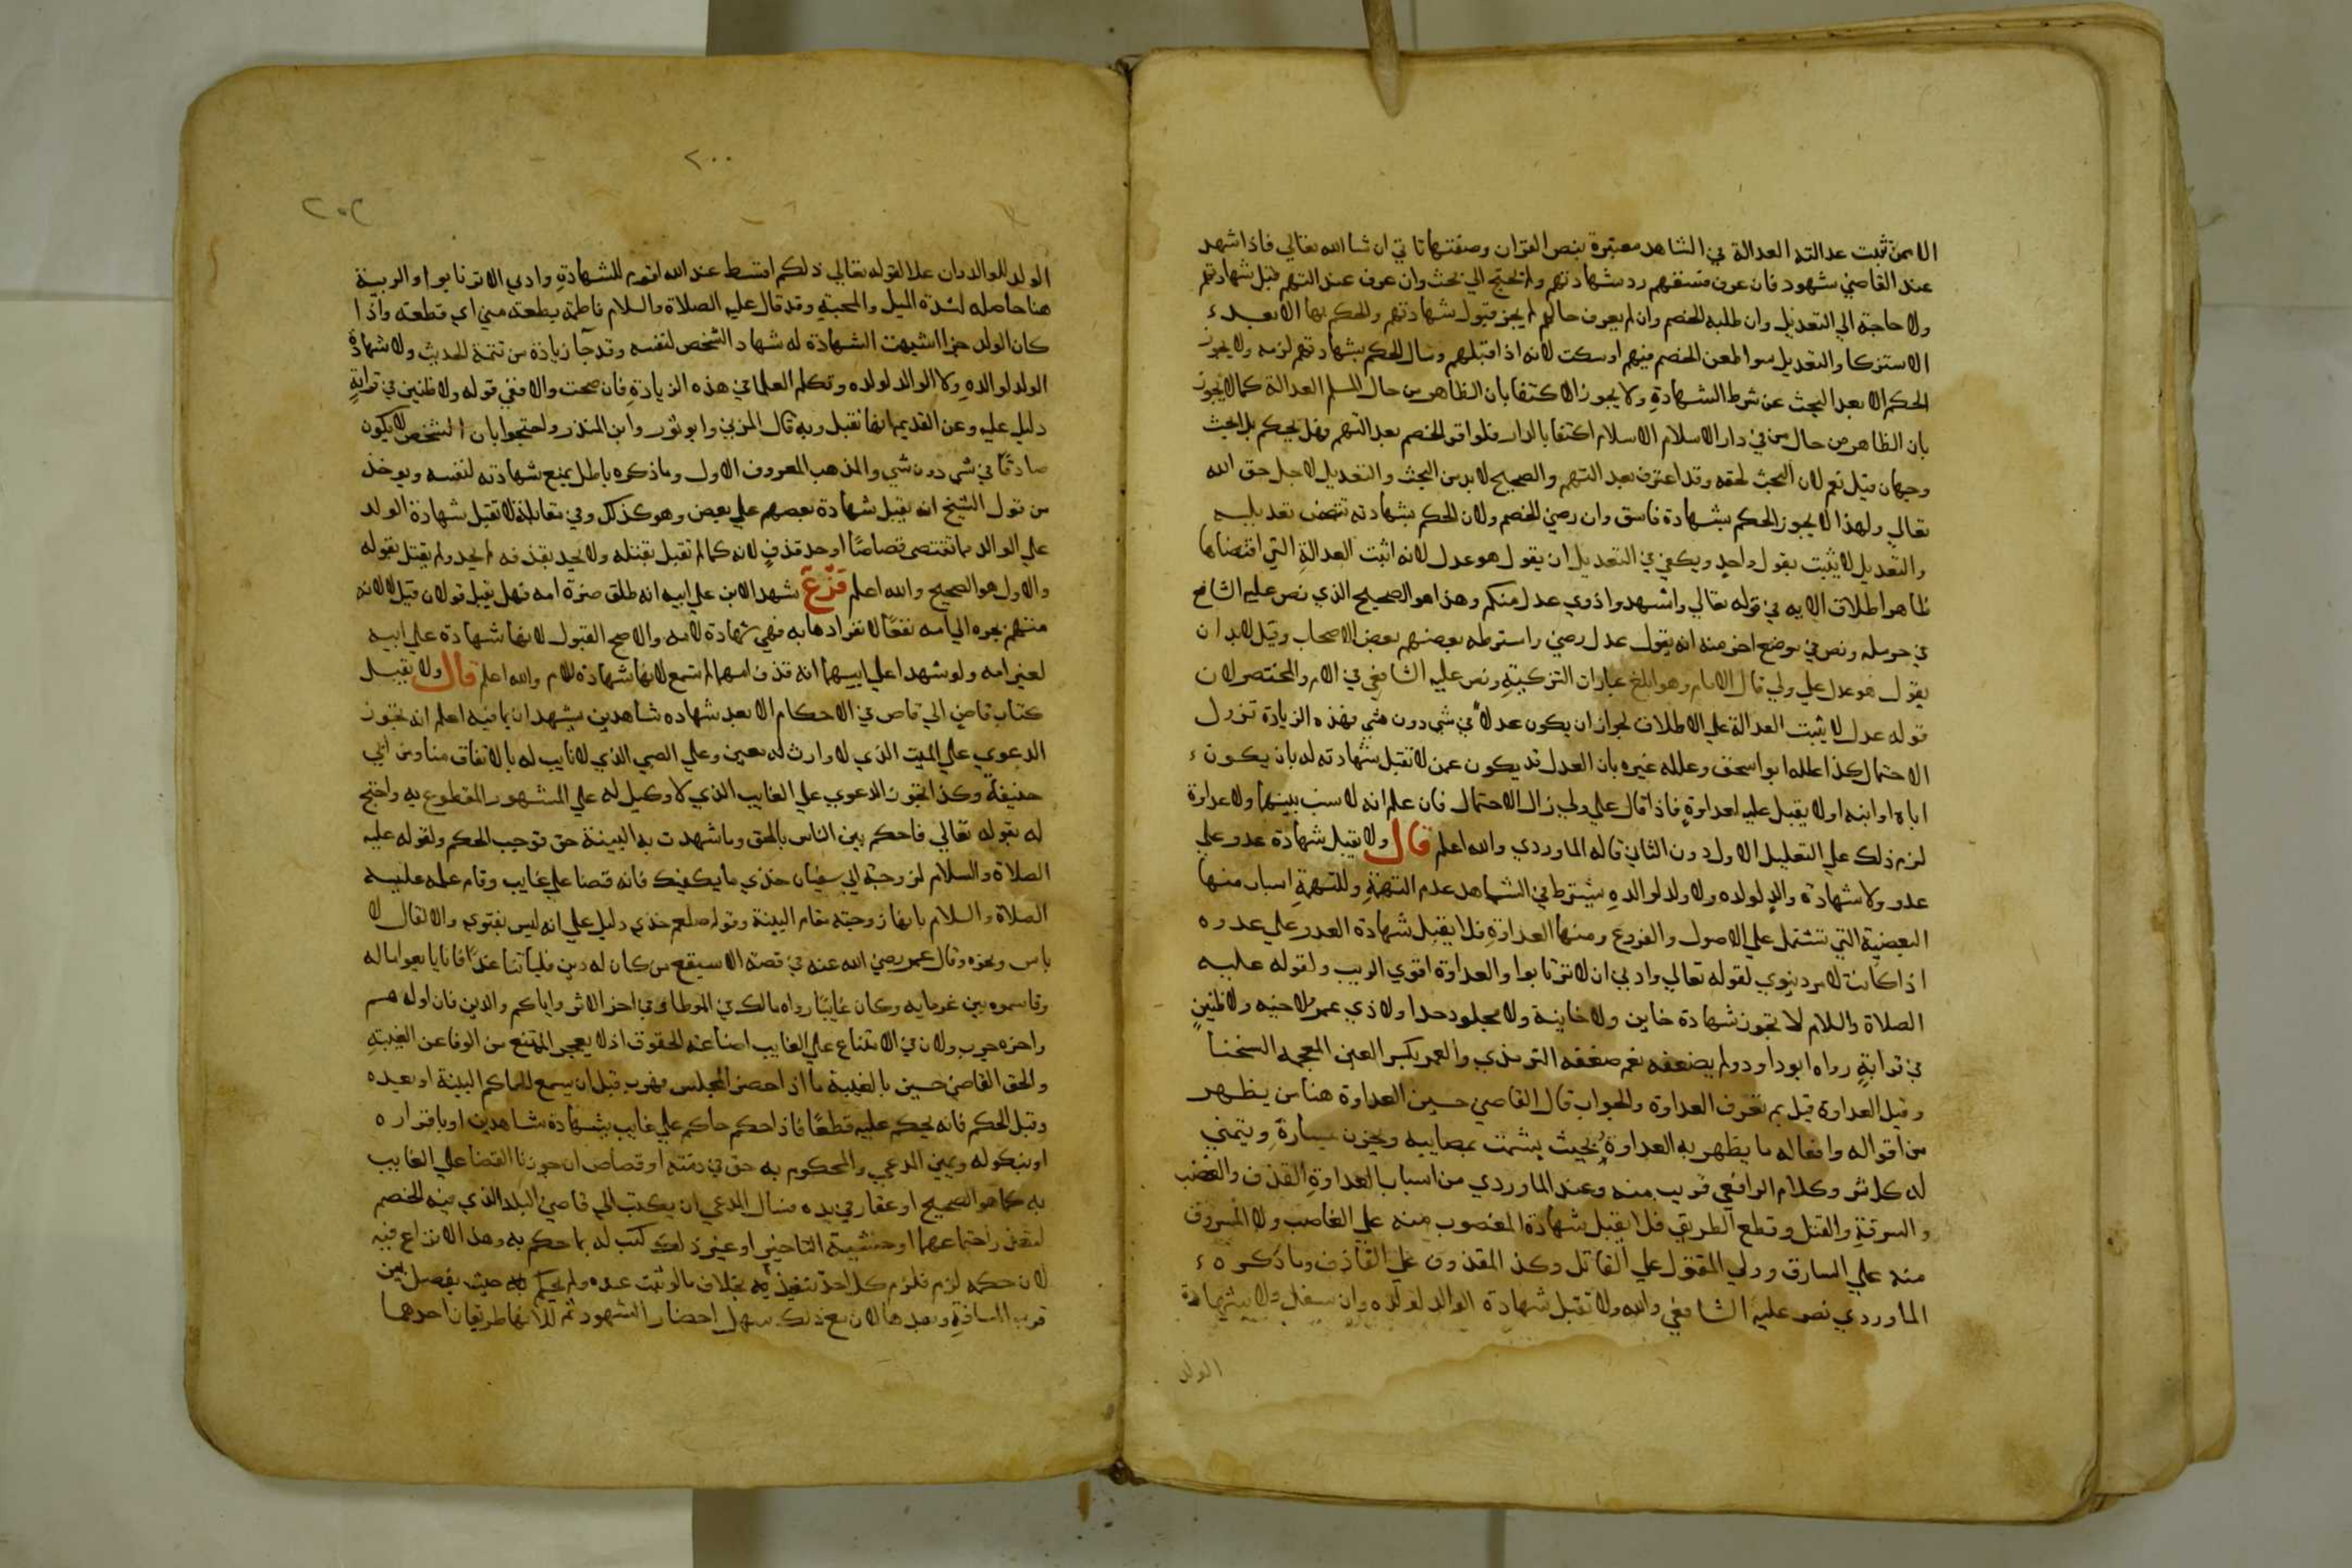 الا ممن ثبتت عدالته العدالة في الشاهد معتبرة بنص القران وصفتها تاتي ان شا الله تعالي فاذا شهد
عند القاضي شهود فان عرف فسقهم رد شهادتهم ولم يحتج الي بحث وان عرف عدالتهم قبل شهادتهم
ولا حاجة الي التعديل وان طلبه الخصم وان لم يعرف حالهم لم يجز قبول شهادتهم والحكم بها الا بعد
الاستزكا والتعديل سوا طعن الخصم فيهم او سكت لانه اذا قبلهم وسال الحكم بشهادتهم لزمه ولا يجوز
الحكم الا بعد البحث عن شرط الشهادة ولا يجوز الاكتفا بان الظاهر من حال المسلم العدالة كما لا يجوز
بان الظاهر من حال من في دار الاسلام الاسلام اكتفا بالدار فلو اقر الخصم بعدالتهم فهل يحكم بلا بحث
وجهان قيل نعم لان البحث لحقه وقد اعترف بعدالتهم والصحيح لا بد من البحث والتعديل لاجل حق الله
تعالي ولهذا لا يجوز الحكم بشهادة فاسق وان رضي الخصم ولان الحكم بشهادته تتضمن تعديله
والتعديل لا يثبت بقول واحد ويكفي في التعديل ان يقول هو عدل لانه اثبت العدالة التي اقتضاها
ظاهر اطلاق الايه في قوله تعالي واشهدوا ذوي عدل منكم وهذا هو الصحيح الذي نص عليه الشافعي
في حرمله ونص في موضع اخر منه انه يقول عدل رضي واشترطه بعضهم بعض الاصحاب وقيل لا بد ان
يقول هو عدل علي ولي قال الامام وهو ابلغ عبارات التزكية ونص عليه الشافعي في الام والمختصر لان
قوله عدل لا يثبت العدالة علي الاطلاق لجواز ان يكون عدلا في شي دون شي فهذه الزيادة تزيل
الاحتمال كذا علله ابو اسحق وعلله غيره بان العدل قد يكون عمن لا تقبل شهادته له بان يكون
اباه او ابنه او لا يقبل عليه لعداوة فاذا قال علي ولي زال الاحتمال فان علم انه لا نسب بينهما ولا عداوة
لزم ذلك علي التعليل الاول دون الثاني قاله الماوردي والله اعلم قال ولا تقبل شهادة عدو علي
عدو ولا شهادة والد لولده ولا ولد لوالده يشترط في الشاهد عدم التهمة وللتهمة اسباب منها
البعضية التي تشتمل علي الاصول والفروع ومنها العداوة فلا يقبل شهادة العدو علي عدوه
اذا كانت لامر دنيوي لقوله تعالي وادني ان لا ترتابوا والعداوة اقوي الريب ولقوله عليه
الصلاة والسلام لا تجوز شهادة خاين ولا خاينة ولا مجلود حدا ولا ذي غمر علي اخيه ولا ظنين
في قرابة رواه ابو داود ولم يضعفه نعم ضعفه الترمذي والغمر بكسر الغين المعجمه الشحنا
وقيل العداوة قيل بم تعرف العداوة والجواب قال القاضي حسين العداوة هنا من يظهر
من اقواله وافعاله ما يظهر به العداوة بحيث يشمت بمصايبه ويحزن بمساره ويتمني
له كل شر وكلام الرافعي قريب منه وعند الماوردي من اسباب العداوة القذف والغصب
والسرقة والقتل وقطع الطريق فلا يقبل شهادة المغصوب منه علي الغاصب ولا المسروق
منه علي السارق وولي المقتول علي القاتل وكذا المقذوف علي القاذف وما ذكره
الماوردي نص عليه الشافعي والله ولا تقبل شهادة الوالد لولده وان سفل ولا شهادة
الولد
٢٠٠
الولد للوالد وان علا لقوله تعالي ذلكم اقسط عند الله اقوم للشهادة وادي الا ترتابوا والريبة
هنا حاصله لشدة الميل والمحبة وقد قال عليه الصلاة والسلام فاطمة بضعة مني اي قطعة واذا
كان الولد جزا اشبهت الشهادة له شهاد الشخص لنفسه وقد جا زيادة من تتمة الحديث ولا شهادة
الولد لوالده ولا الوالد لولده وتكلم العلما في هذه الزيادة فان صحت والا ففي قوله ولا ظنين في قرابة
دليل عليه وعن القديم انها تقبل وبه قال المزني وابو ثور وابن المنذر واحتجوا بان الشخص لا يكون
صادقا في شي دون شي والمذهب المعروف الاول وما ذكره باطل بمنع شهادته لنفسه ويوخذ
من قول الشيخ انه تقبل شهادة بعضهم علي بعض وهو كذلك وفي مقابلة لا تقبل شهادة الولد
علي الوالد بما تقتضي قصاصا او حد قذف لانه كما لم تقبل بقتله ولا يحد بقذفه لم يحد ولم يقتل بقوله
والاول هو الصحيح والله اعلم فرع شهد الابن علي ابيه انه طلق ضرة امه فهل يقبل قولان قيل لا لانه
متهم بجره الي امه نفعا لانفرادها به فهي شهادة لامه والاصح القبول لانها شهادة علي ابيه
لغير امه ولو شهدا علي ابيهما انه قذف امهما لم تسمع لانها شهادة للام والله اعلم قال ولا يقبل
كتاب قاض الي قاض في الاحكام الا بعد شهاده شاهدين يشهدان بما فيه اعلم انه تجوز
الدعوي علي الميت الذي لا وارث له معين وعلي الصبي الذي لا نايب له بالاتفاق منا ومن ابي
حنيفة وكذا تجوز الدعوي علي الغايب الذي لا وكيل له علي المشهور المقطوع به واحتج
له بقوله تعالي فاحكم بين الناس بالحق وما شهدت به البينة حق توجب الحكم ولقوله عليه
الصلاة والسلام لزوجة ابي سفيان خذي ما يكفيك فانه قضا علي غايب وقام علمه عليه
الصلاة والسلام بانها زوجته مقام البينة وقوله صلعم خذي دليل علي انه ليس بفتوي والا لقال لا
باس ونحوه وقال عمر رضي الله عنه في قصة الاسيفع من كان له دين فلياتنا غدا فانا بايعوا ماله
وقاسموه بين غرمايه وكان غايبا رواه مالك في الموطا وفي اخر الاثر واياكم والدين فان اوله هم
واخره حرب ولان في الامتناع علي الغايب اضاعة الحقوق اذ لا يعجز الممتنع من الوفا عن الغيبة
والحق القاضي حسين بالغيبة ما اذا احضر المجلس فهرب قبل ان يسمع الحاكم البينة او بعده
وقبل الحكم فانه يحكم عليه قطعا فاذا حكم حاكم علي غايب بشهادة شاهدين او باقراره
او بنكوله ويمين المدعي والمحكوم به حق في ذمته او قصاص ان جوزنا القضا علي الغايب
به كما هو الصحيح او عقار في يده فسال المدعي ان يكتب الي قاضي البلد الذي فيه الخصم
لتعذر اجتماعهما او خشية التاخير او غير ذلك كتب له بما حكم به وهذا لا نزاع فيه
لان حكمه لزم فلزم كل احد تنفيذه بخلاف ما لو ثبت عنده ولم يحكم به حيث يفصل بين
قرب المسافة وبعدها لان مع ذلك يسهل احضار الشهود ثم للانها طريقان احدهما